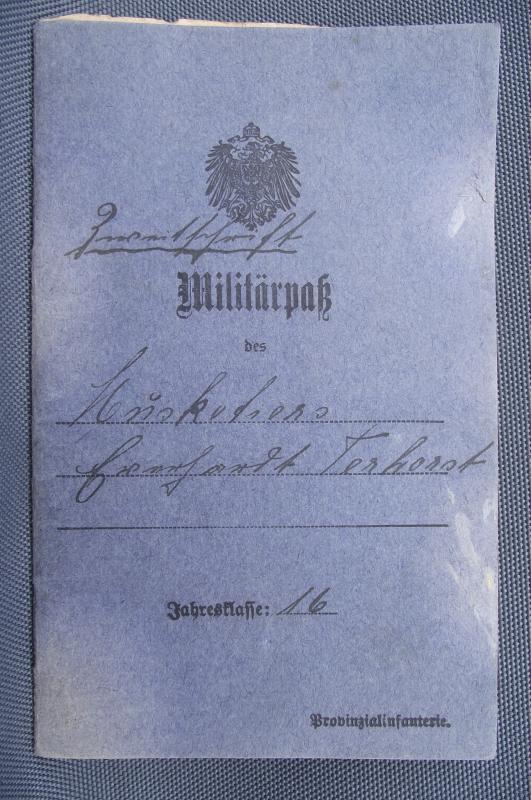 Zweitschrift
Militärpaß
des
Musketiers
Everhardt Terhorst
Jahresklasse: 16
Provinzialinfanterie.